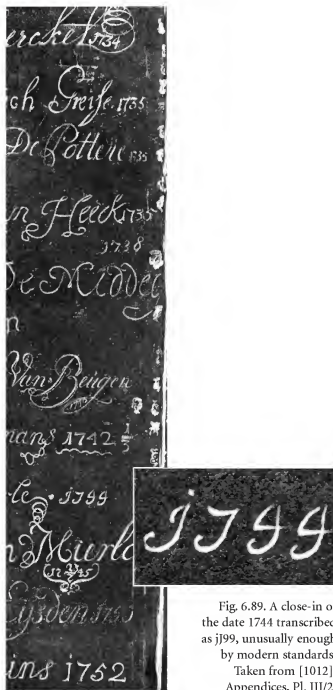 erckel 1734
ch Greife. 1735
De Pottere 1735
n Heeck 1735
1738
De Middel
n
Van Beugen
nans 1742
le 1744
j799
n Mierlo
1745
Eijsden 1751
ins 1752
Fig. 6.89. A close-in o
the date 1744 transcribed
as jJ99, unusually enough
by modern standards
Taken from [1012]
Appendices, Pl. III/2